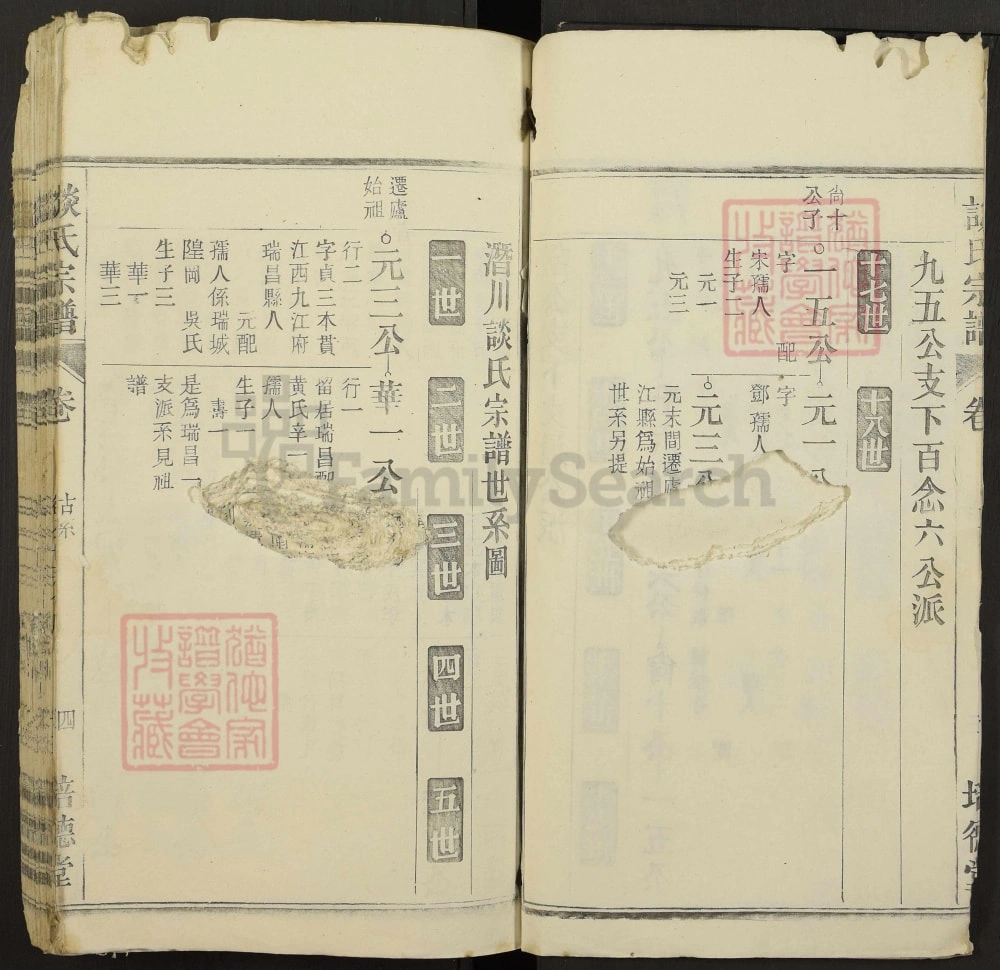 談氏宗譜
卷
九五公支下百念六公派
十七世
十八世
尚十
公子
一五公
字 配
宋孺人
生子二
元一
元三
元一
字
鄧孺人
元三公
元末間遷廬
江縣爲始祖
世系另提
潛川談氏宗譜世系圖
一世
二世
三世
四世
五世
遷廬
始祖
元三公
行二
字貞三本貫
江西九江府
瑞昌縣人
元配
孺人係瑞城
隍岡 吳氏
生子三
華一
華三
華一公
行一
留居瑞昌配
黄氏辛一
孺人
生子一
壽一
是爲瑞昌一
支派系見祖
譜
談氏宗譜
卷
四
培德堂
FamilySearch